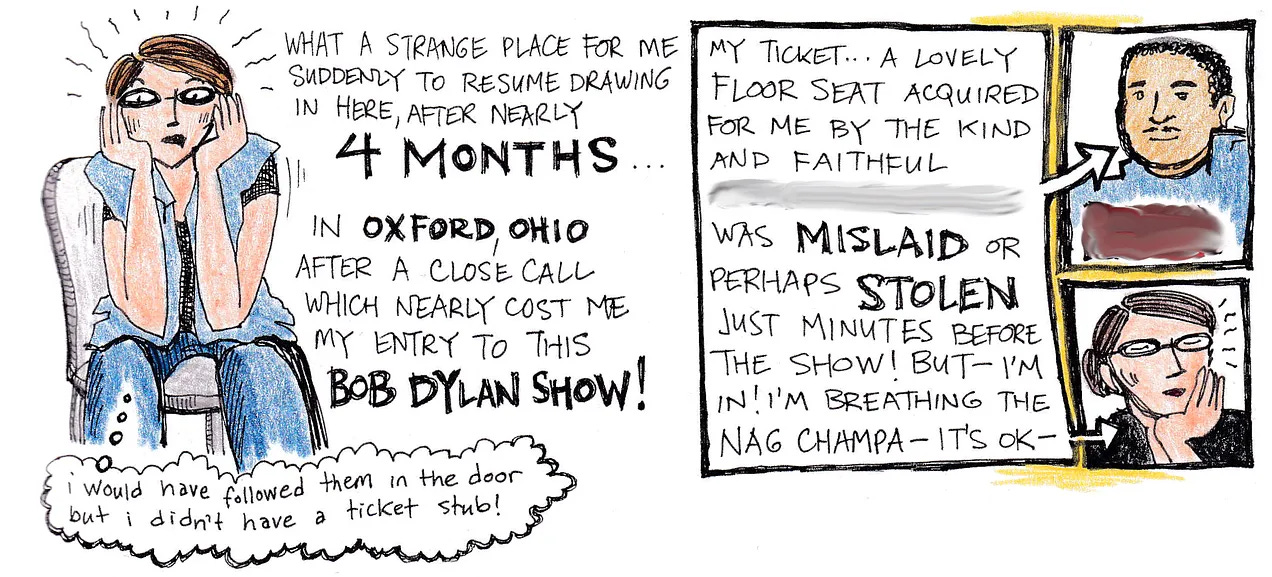 WHAT A STRANGE PLACE FOR ME
SUDDENLY TO RESUME DRAWING
IN HERE, AFTER NEARLY
4 MONTHS...
IN OXFORD, OHIO
AFTER A CLOSE CALL
WHICH NEARLY COST ME
MY ENTRY TO THIS
BOB DYLAN SHOW!
i would have followed them in the door
but i didn't have a ticket stub!
MY TICKET... A LOVELY
FLOOR SEAT ACQUIRED
FOR ME BY THE KIND
AND FAITHFUL
WAS MISLAID OR
PERHAPS STOLEN
JUST MINUTES BEFORE
THE SHOW! BUT—I'M
IN! I'M BREATHING THE
NAG CHAMPA—IT'S OK—